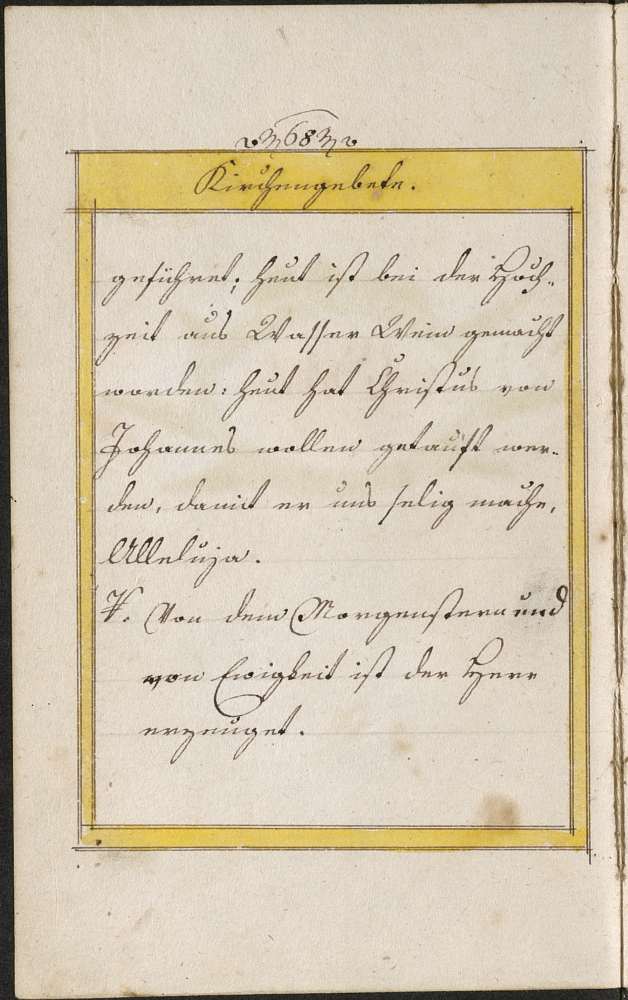 68
Kirchengebete.
geführet; heut ist bei der Hoch-
zeit aus Wasser Wein gemacht
worden: heut hat Christus von
Johannes wollen getauft wer-
den, damit er uns selig mache,
Alleluja.
℣. Von dem Morgenstern und
von Ewigkeit ist der Herr
erzeuget.